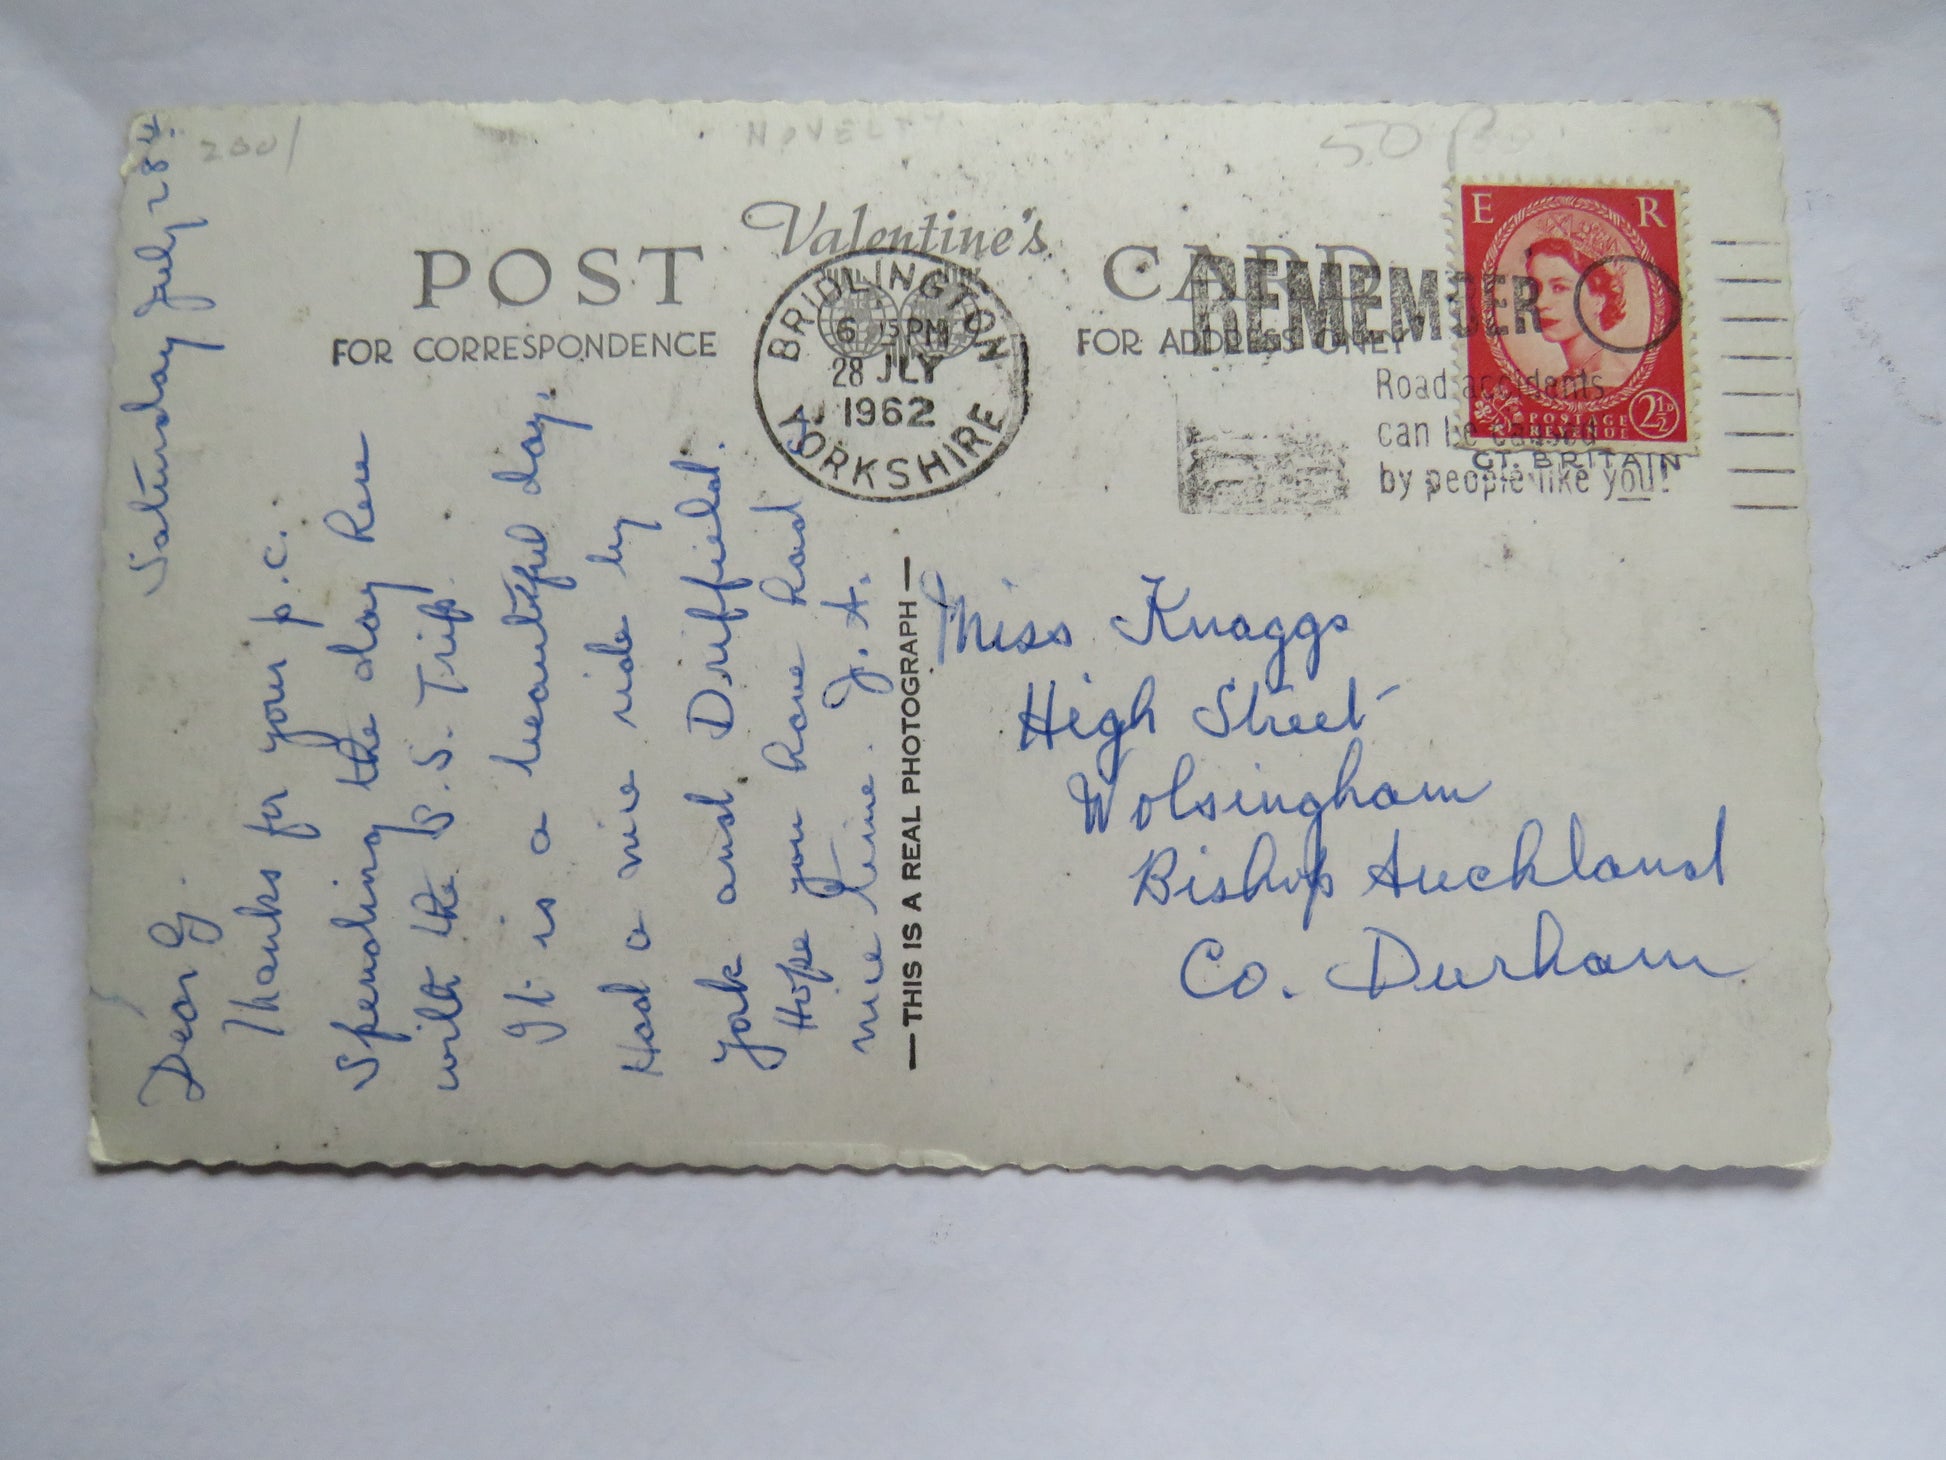 2001
NOVELTY
50p
Valentine's
POST CARD
FOR CORRESPONDENCE
FOR ADDRESS ONLY
BRIDLINGTON
6 15 PM
28 JLY
1962
YORKSHIRE
REMEMBER
Road accidents
can be caused
by people like you!
E R
POSTAGE
REVENUE
2½D
GT. BRITAIN
Saturday July 28th.
Dear G.
Thanks for your p.c.
Spending the day here
with the S.S. Trip.
It is a beautiful day.
Had a nice ride by
York and Driffield.
Hope you have had
nice time. J. A.
— THIS IS A REAL PHOTOGRAPH —
Miss Knaggs
High Street
Wolsingham
Bishop Auckland
Co. Durham